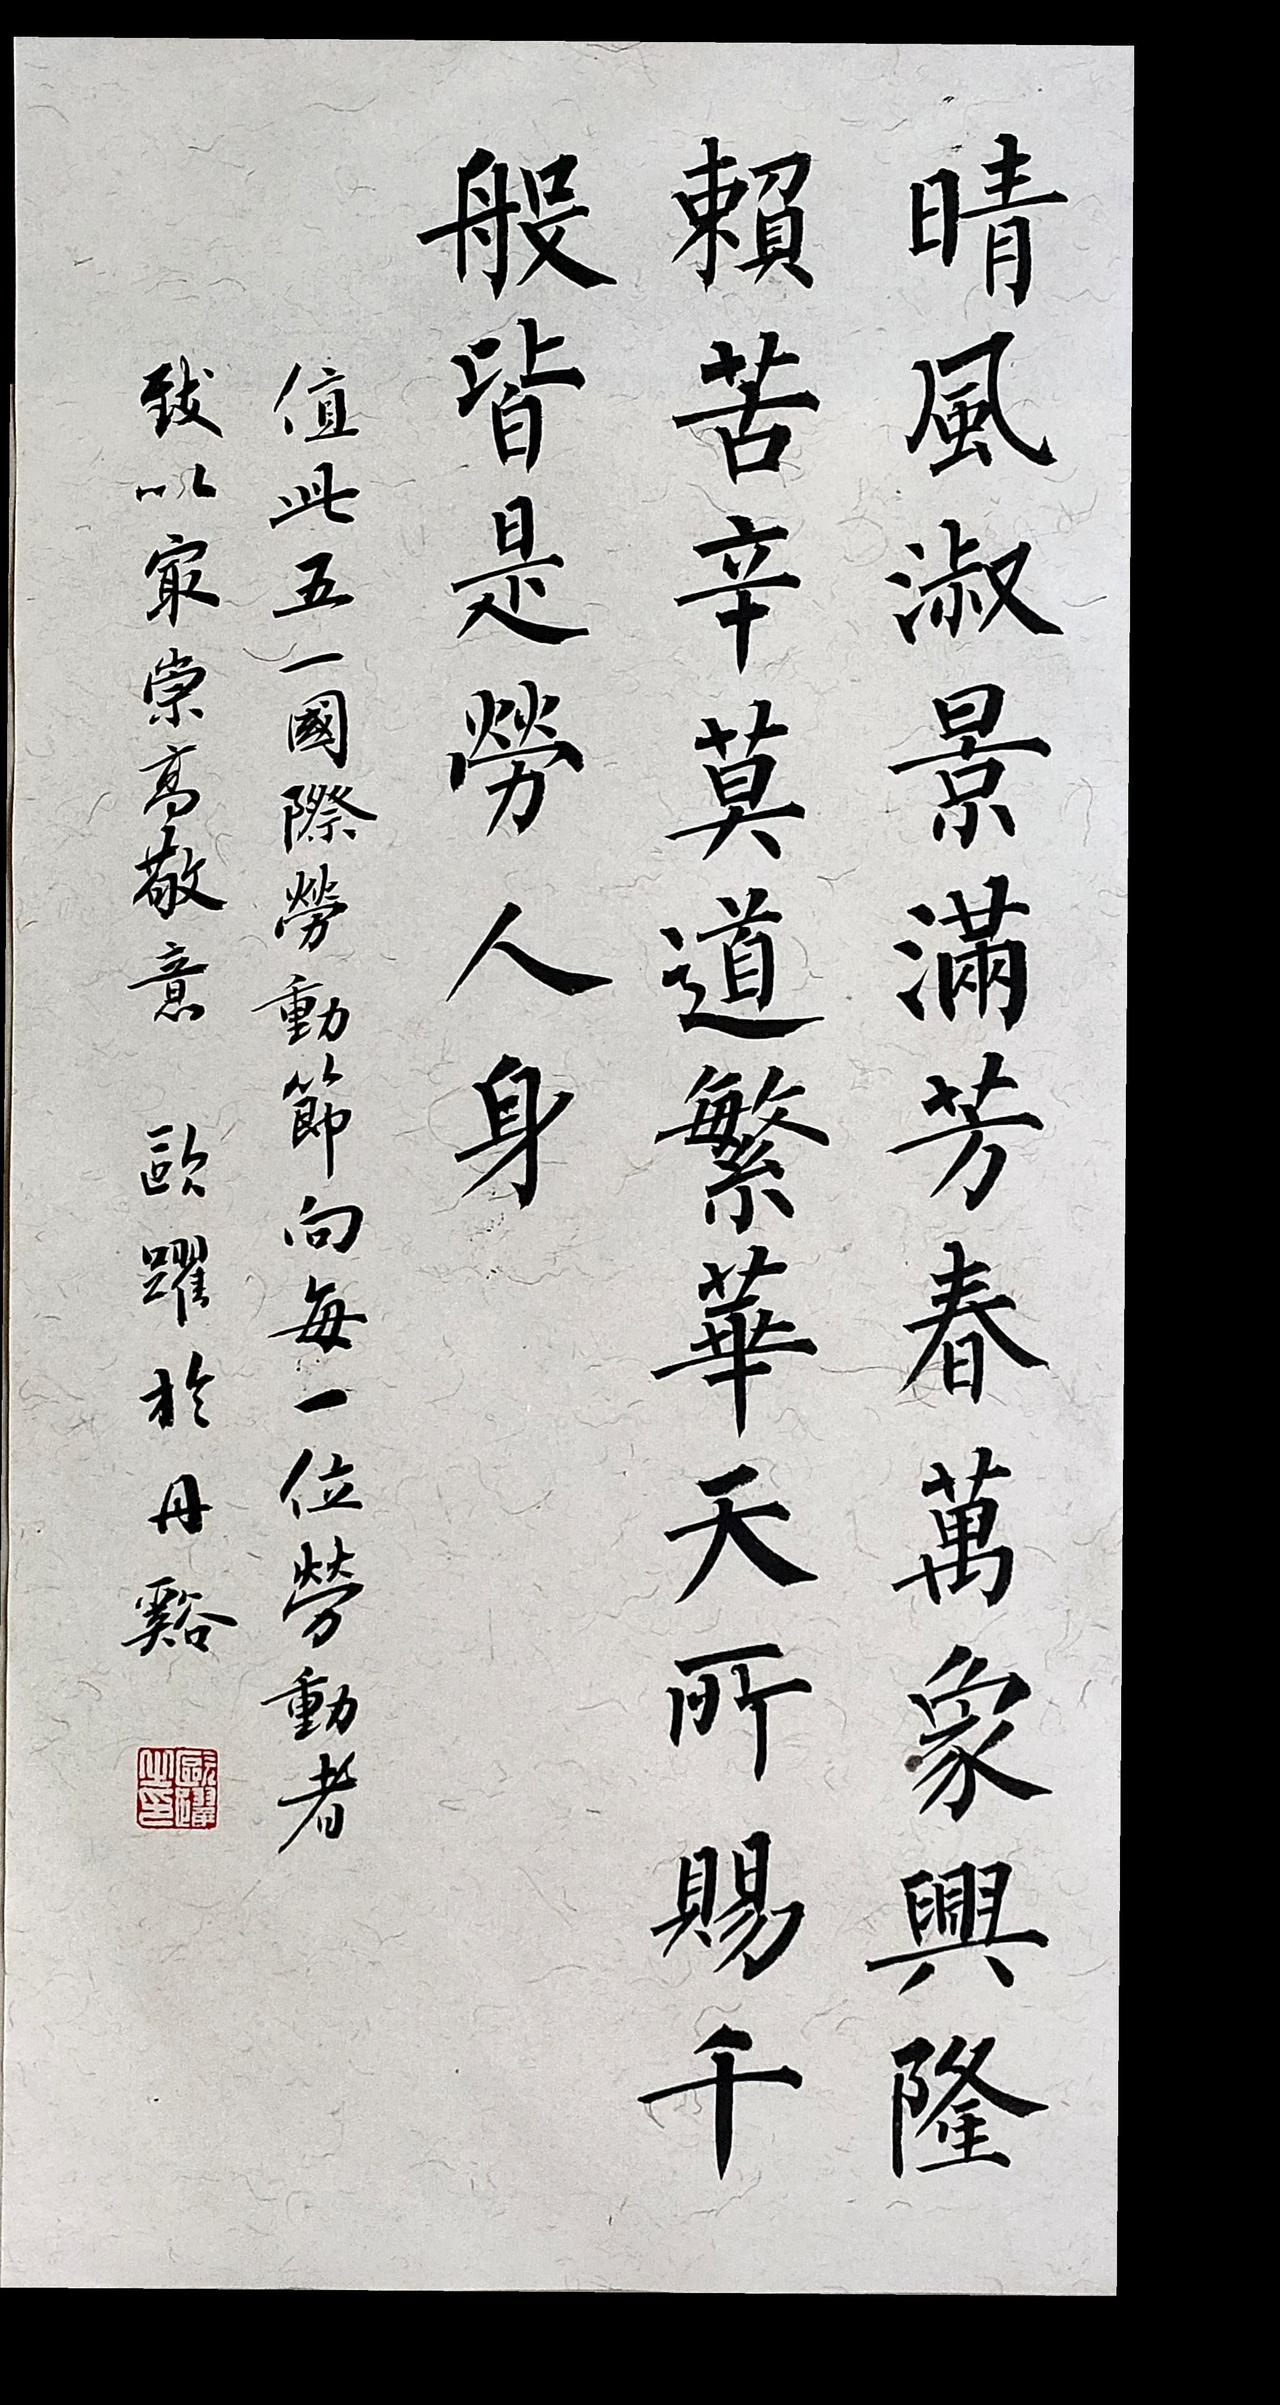 晴風淑景滿芳春萬象興隆
賴苦辛莫道繁華天所賜千
般皆是勞人身
值此五一國際勞動節向每一位勞動者
致以寂崇高敬意 歐躍於丹谿
歐躍之印